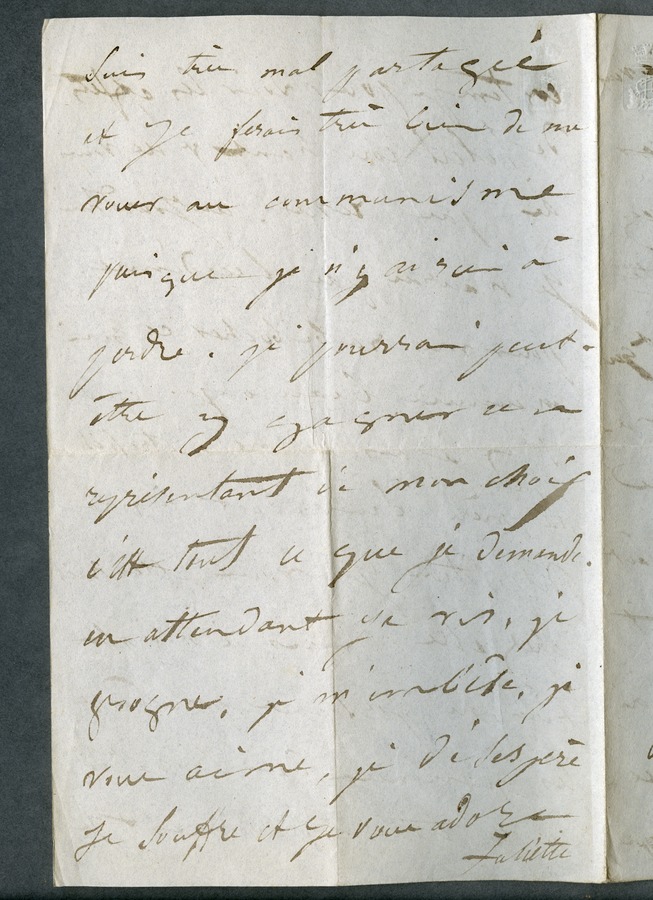 suis très mal partagée
et je ferais très bien de me
vouer au communisme
puisque je n'y ai rien à
perdre. je pourrai peut-
être y gagner un
représentant de mon choix
c'est tout ce que je demande.
en attendant je ris, je
grogne, je m'embête, je
vous aime, je désespère
je souffre et je vous adore
Juliette